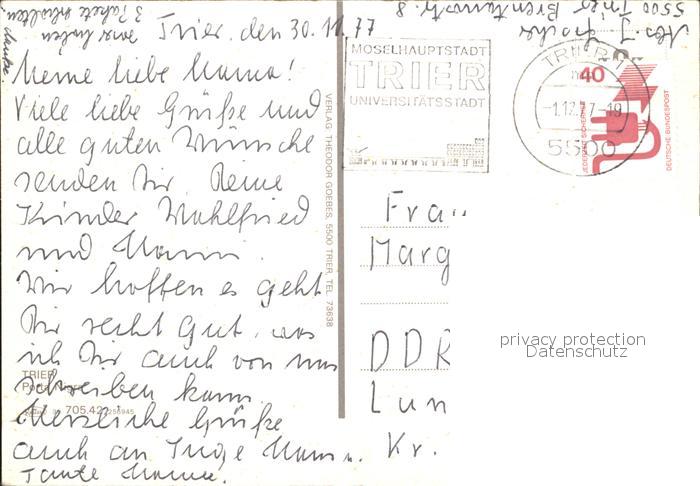 Trier, den 30.11.77
Meine liebe Mama!
Viele liebe Grüße und
alle guten Wünsche
senden Dir Deine
Kinder Wohlfried
und Hanni.
Wir hoffen es geht
Dir recht gut, was
ich Dir auch von uns
schreiben kann.
Herzliche Grüße
auch an Inge
Tante
3 Pakete erhalten
danke
5500 Trier Brentanostr. 8
MOSELHAUPTSTADT
TRIER
UNIVERSITÄTSSTADT
TRIER 1
-1.12.77-19
5500
40
JEDERZEIT SICHERHEIT
DEUTSCHE BUNDESPOST
VERLAG THEODOR GOEBES, 5500 TRIER, TEL. 73638
Frau
Marg
DDR
Lun
Kr.
privacy protection
Datenschutz
TRIER
Porta Nigra
705.42